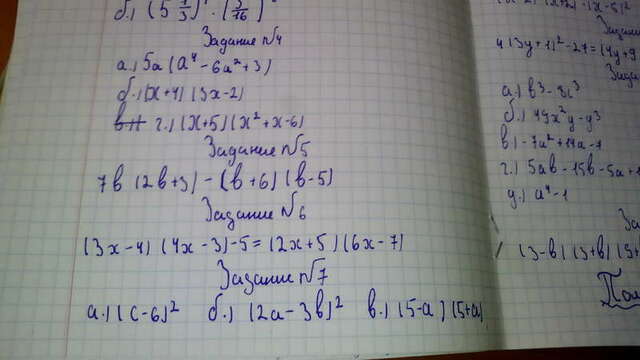 б.) (5 1/3) · (3/16)
Задание №4
а.) 5a (a⁴ - 6a² + 3)
б.) (x+4) (3x-2)
г.) (x+5) (x²+x-6)
Задание №5
7в (2в+3) - (в+6) (в-5)
Задание №6
(3x-4) (4x-3)-5=(2x+5) (6x-7)
Задание №7
а.) (c-6)² б.) (2a-3в)² в.) (5-a) (5+a)
а.) в³-8c³
б.) 49x²y-y³
в) -7a²+14a-7
г.) 5aв-15в-5a+
д.) a⁴-1
(3-в) (3+в) (9+